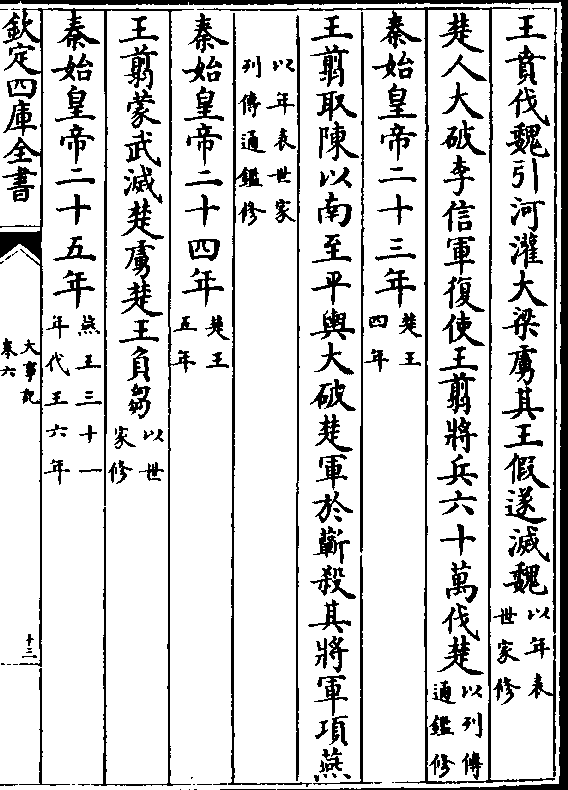 王賁伐魏引河灌大梁虜其王假遂滅魏以年表世家修
楚人大破李信軍復使王翦將兵六十萬伐楚以列傳通鑑修
秦始皇帝二十三年楚王四年
王翦取陳以南至平輿大破楚軍於蘄殺其將軍項燕
以年表世家列傳通鑑修
秦始皇帝二十四年楚王五年
王翦蒙武滅楚虜楚王負芻以世家修
秦始皇帝二十五年燕王三十一年代王六年
欽定四庫全書
大事記
卷六
十三